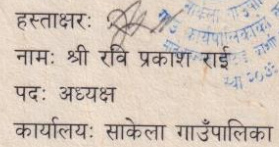 हस्ताक्षरः
नामः श्री रवि प्रकाश राई
पदः अध्यक्ष
कार्यालयः साकेला गाउँपालिका